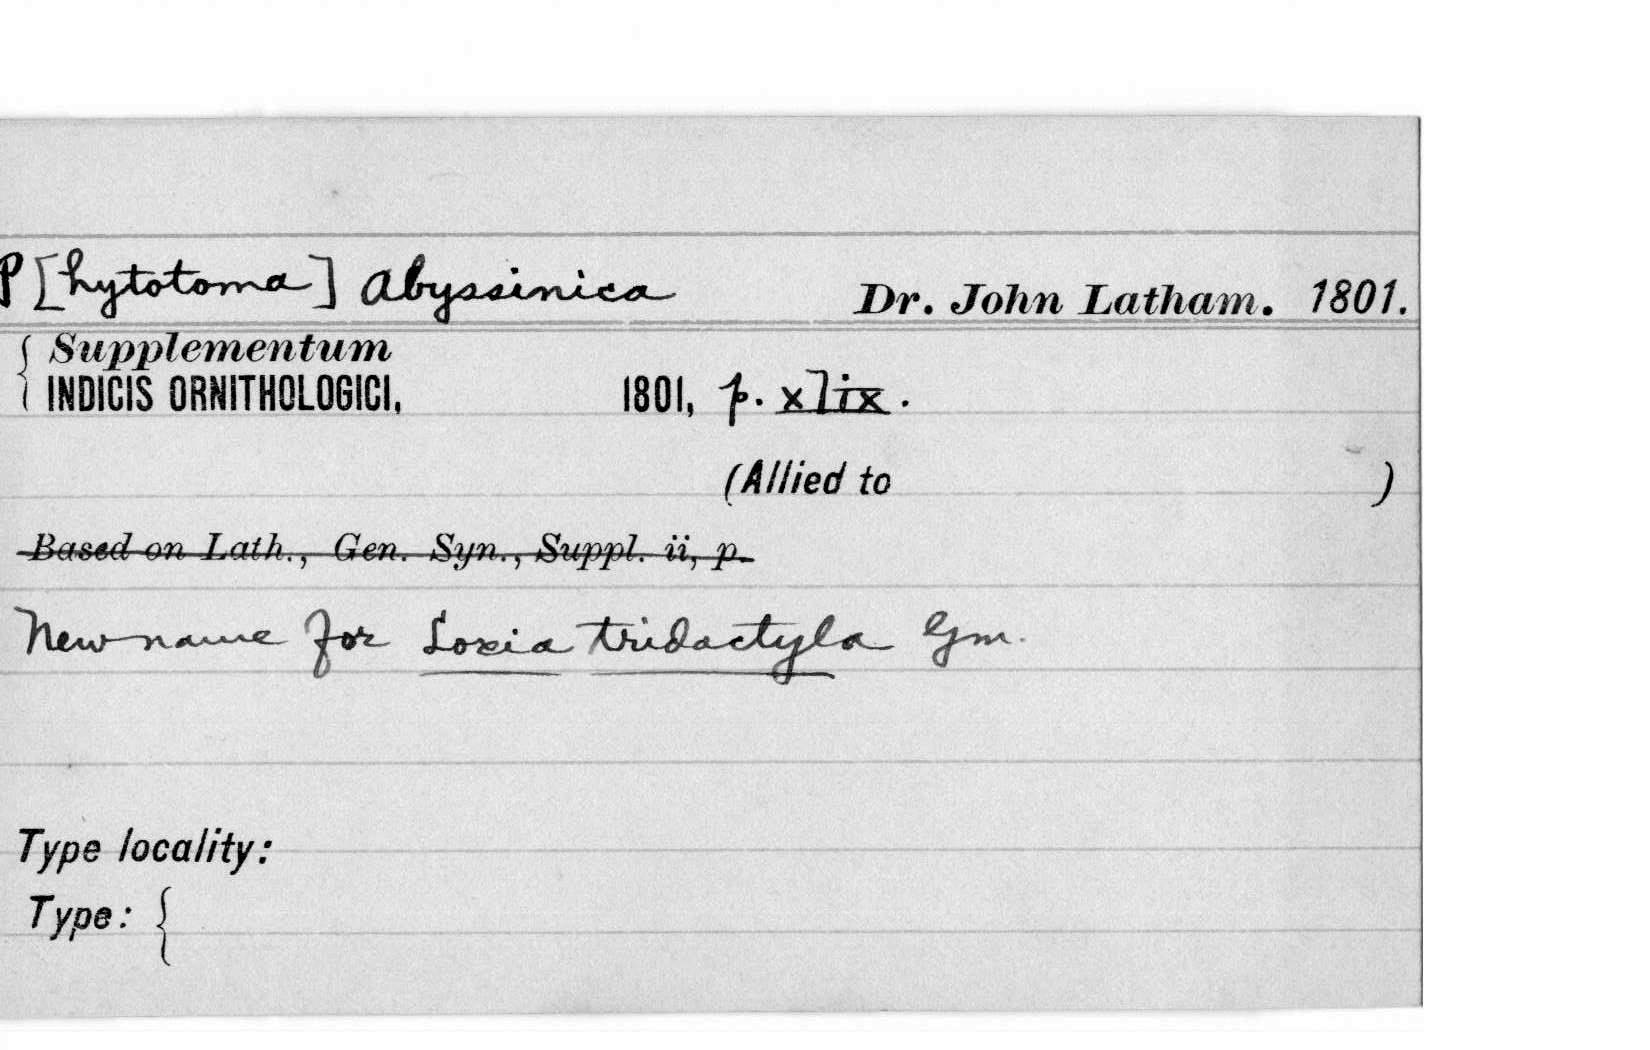 P[hytotoma] abyssinica Dr. John Latham. 1801.
{ Supplementum
INDICIS ORNITHOLOGICI, 1801, p. xlix.
(Allied to )
Based on Lath., Gen. Syn., Suppl. ii, p.
New name for Loxia tridactyla Gm.
Type locality:
Type: {